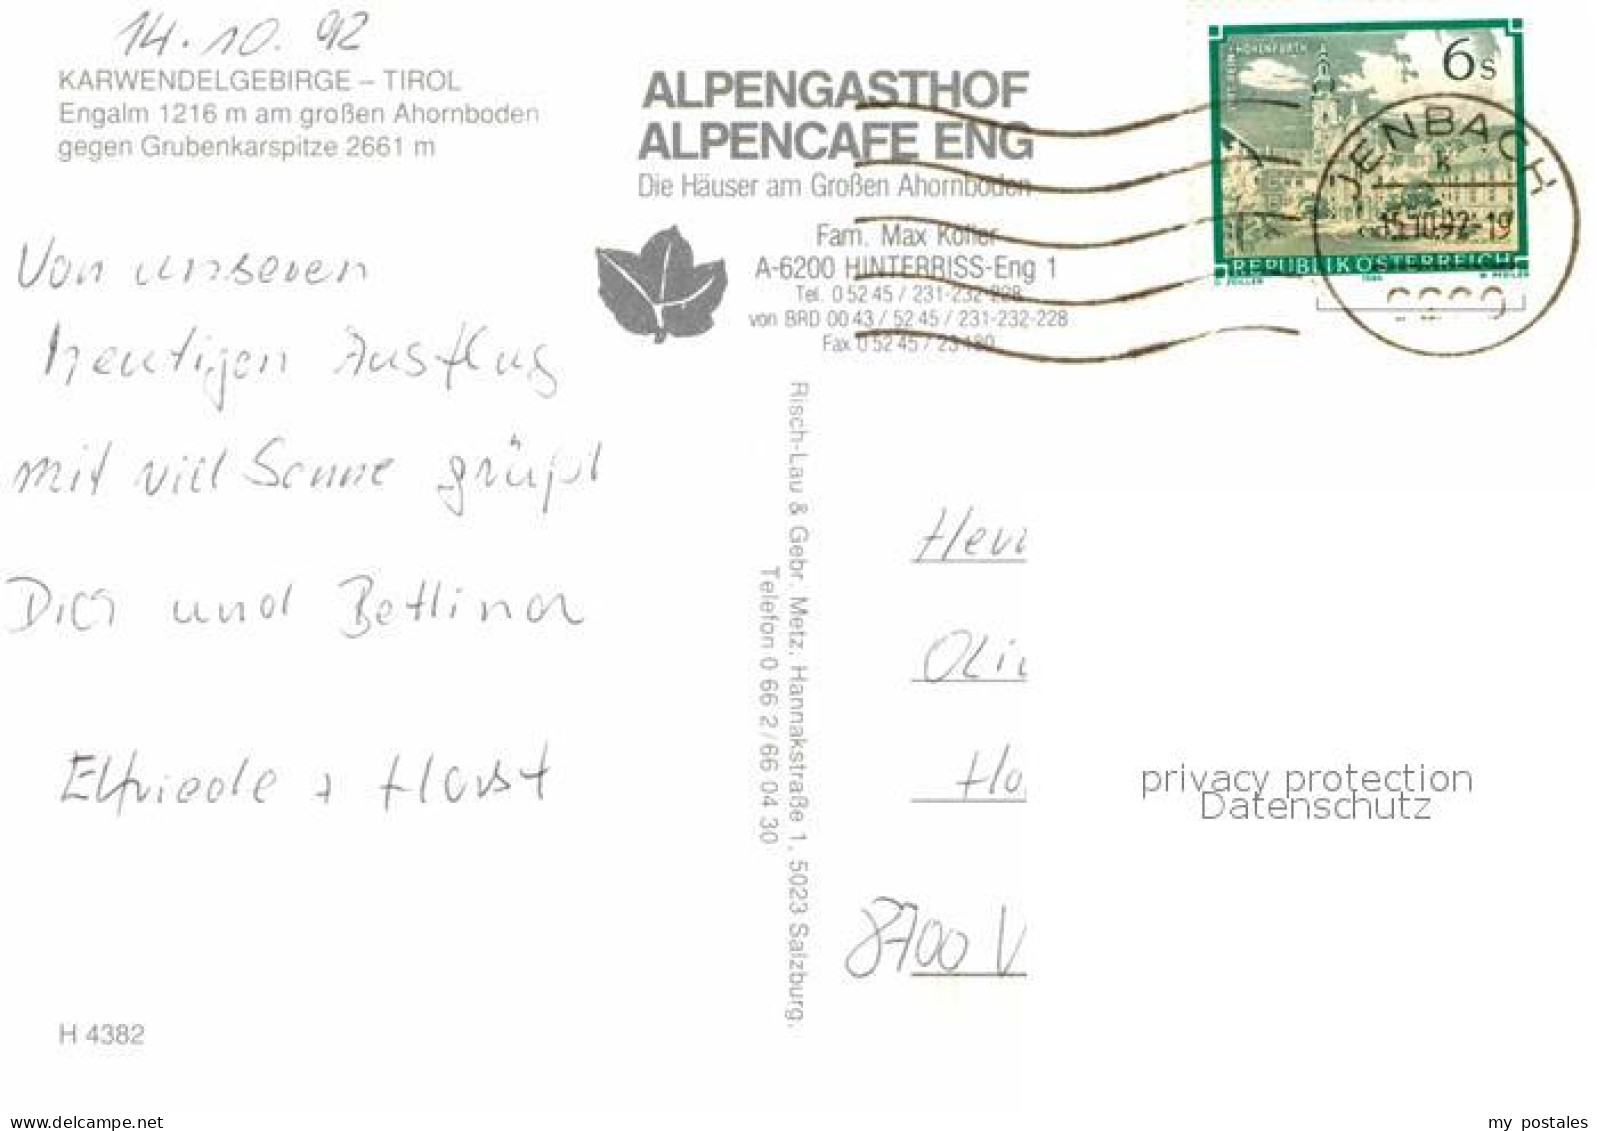 14.10.92
KARWENDELGEBIRGE – TIROL
Engalm 1216 m am großen Ahornboden
gegen Grubenkarspitze 2661 m
Von unseren
heutigen Ausflug
mit viel Sonne grüßt
Dich und Bettina
Elfriede + Horst
H 4382
ALPENGASTHOF
ALPENCAFE ENG
Die Häuser am Großen Ahornboden
Fam. Max Kofler
A-6200 HINTERRISS-Eng 1
Tel. 0 52 45 / 231-232-228
von BRD 00 43 / 52 45 / 231-232-228
Fax 0 52 45 / 23
Risch-Lau & Gebr. Metz, Hannakstraße 1, 5023 Salzburg,
Telefon 0 66 2/66 04 30
6 S
REPUBLIK ÖSTERREICH
JENBACH
15.10.92-19
Oli
Ho
8700 V
privacy protection
Datenschutz
delcampe.net
my_postales